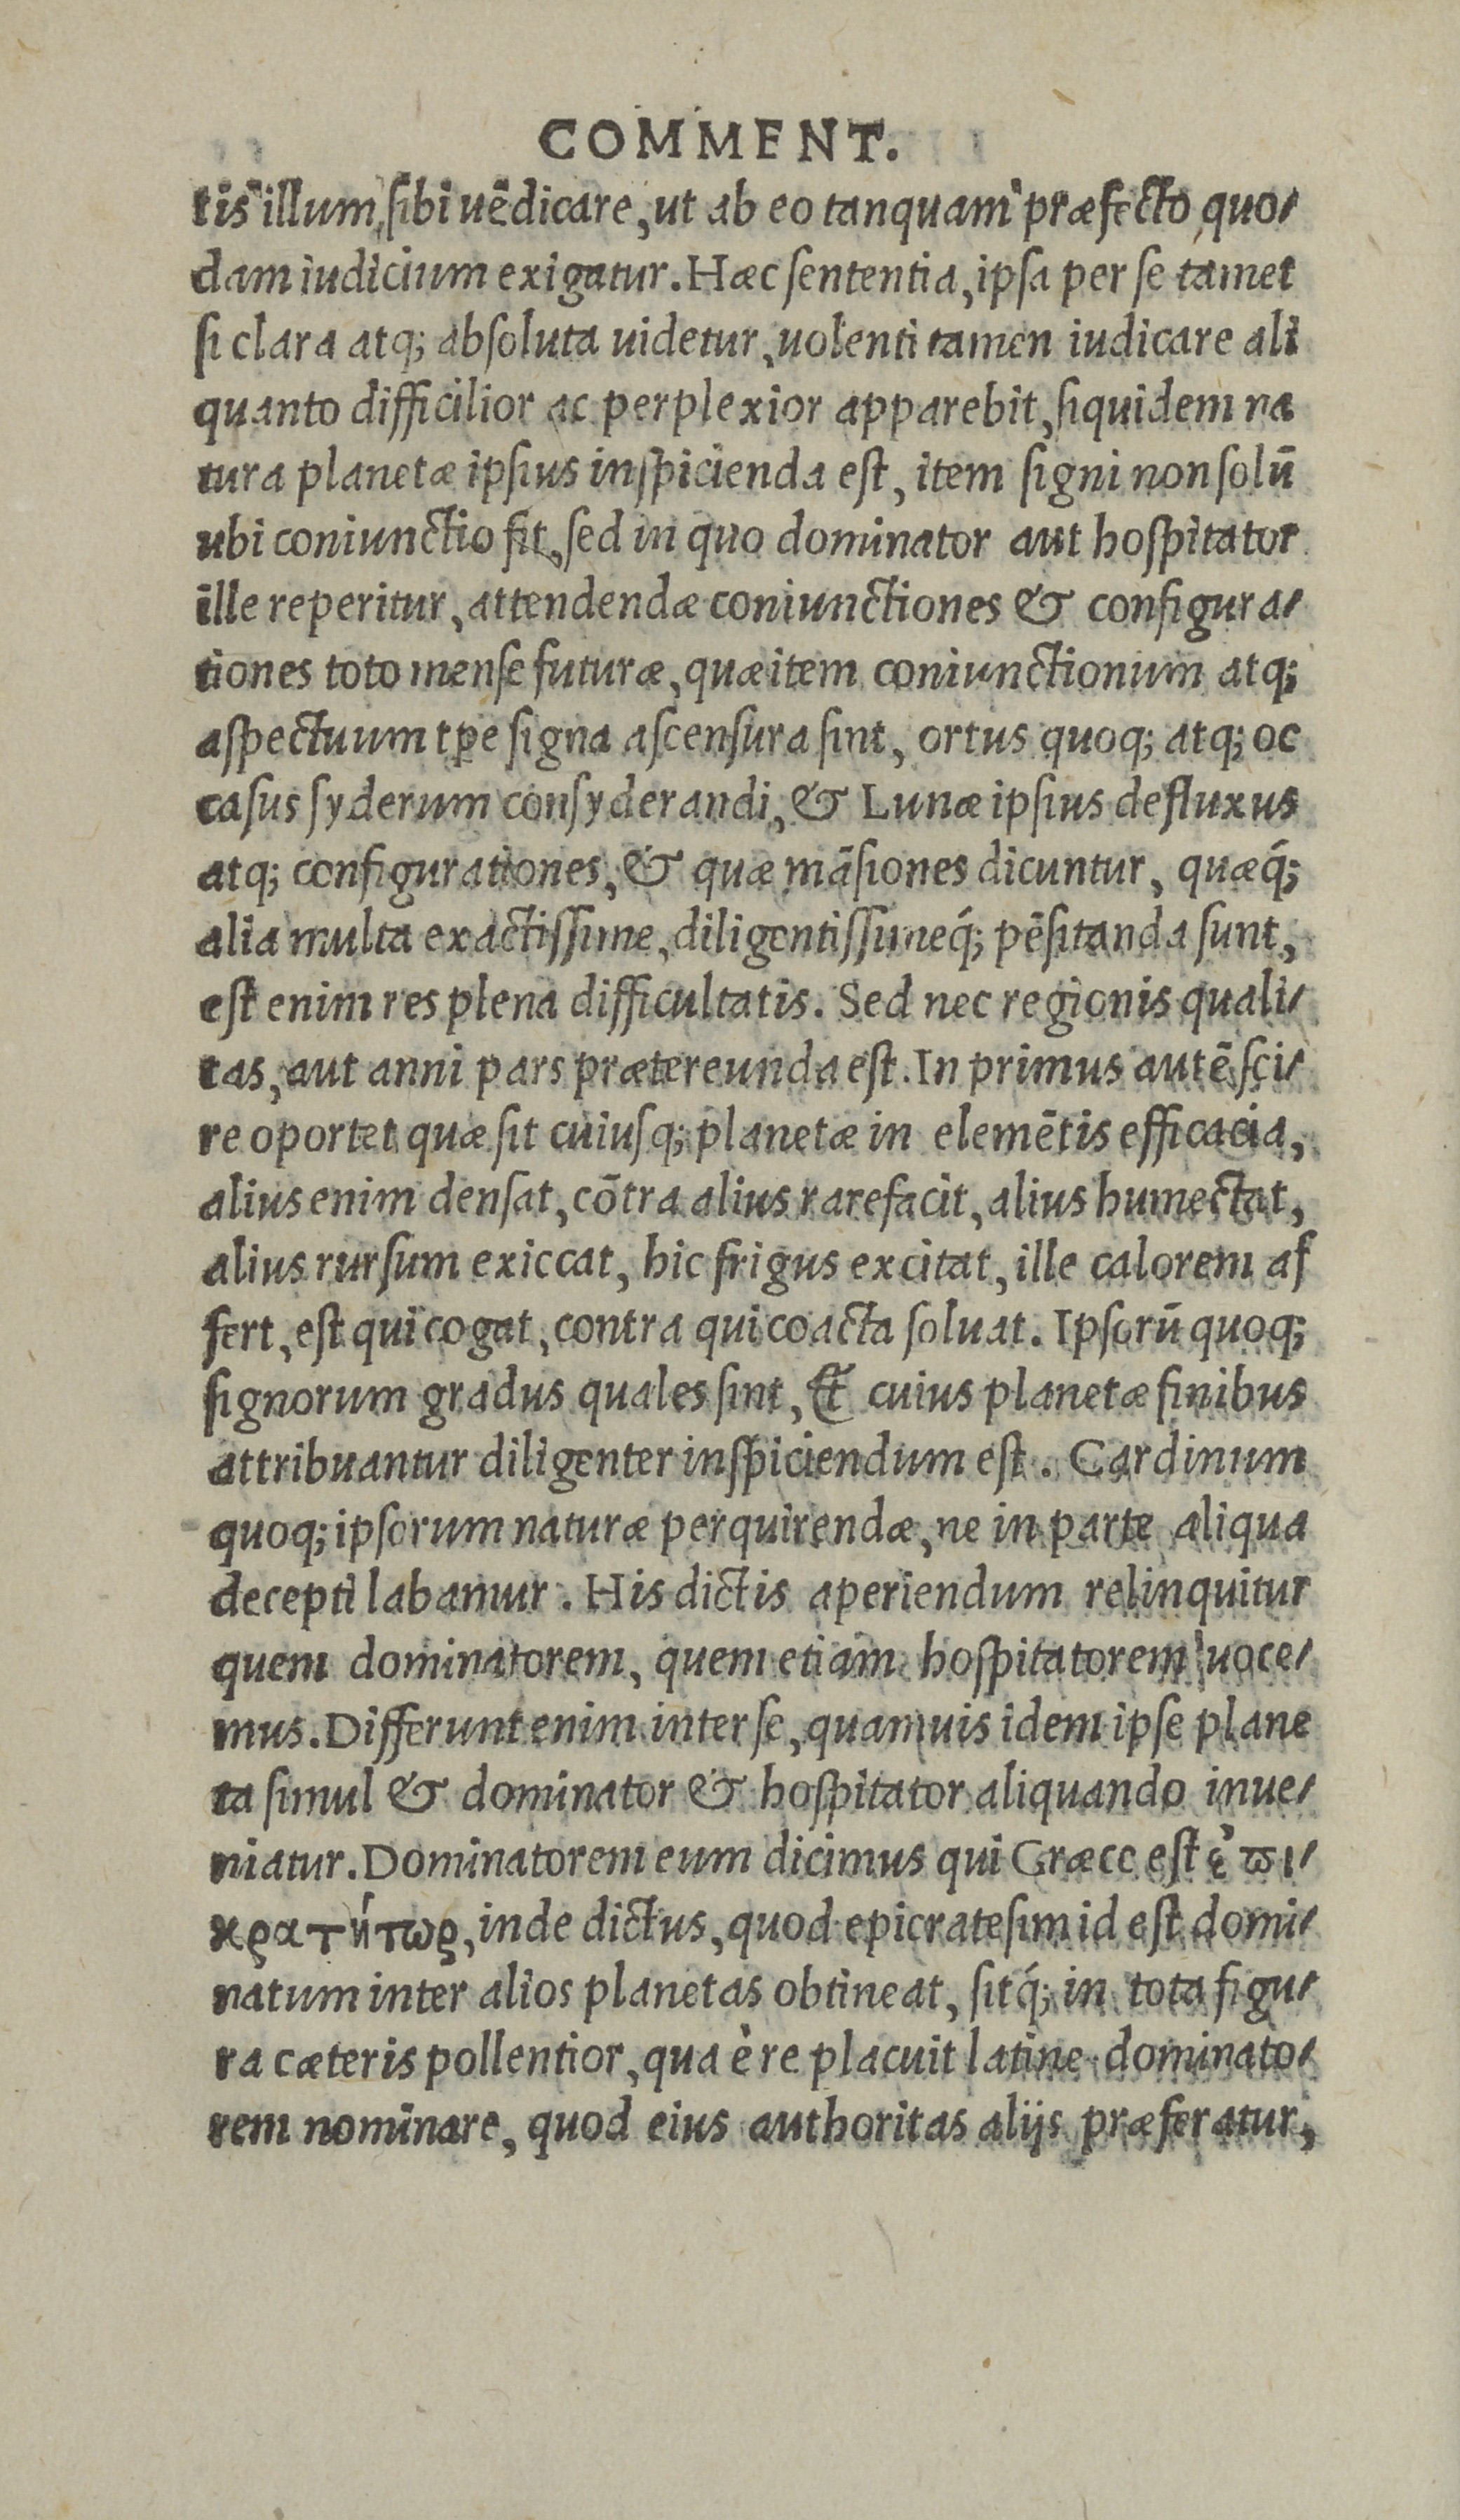 COMMENT.
tis illum sibi uēdicare, ut ab eo tanquam præfecto quo-
dam iudicium exigatur. Hæc sententia, ipsa per se tamet
si clara atq; absoluta uidetur, uolenti tamen iudicare ali
quanto difficilior ac perplexior apparebit, siquidem na
tura planetæ ipsius inspicienda est, item signi non solū
ubi coniunctio fit, sed in quo dominator aut hospitator
ille reperitur, attendendæ coniunctiones & configura-
tiones toto mense futuræ, quæ item coniunctionum atq;
aspectuum tp̄e signa ascensura sint, ortus quoq; atq; oc
casus syderum consyderandi, & Lunæ ipsius defluxus
atq; configurationes, & quæ māsiones dicuntur, quæq́;
alia multa exactissime, diligentissimeq́; pēsitanda sunt,
est enim res plena difficultatis. Sed nec regionis quali-
tas, aut anni pars prætereunda est. In primus autē sci-
re oportet quæ sit cuiusq; planetæ in elemētis efficacia,
alius enim densat, cōtra alius rarefacit, alius humectat,
alius rursum exiccat, hic frigus excitat, ille calorem af
fert, est qui cogat, contra qui coacta soluat. Ipsorū quoq;
signorum gradus quales sint, & cuius planetæ finibus
attribuantur diligenter inspiciendum est. Cardinum
quoq; ipsorum naturæ perquirendæ, ne in parte aliqua
decepti labamur. His dictis aperiendum relinquitur
quem dominatorem, quem etiam hospitatorem uoce-
mus. Differunt enim inter se, quamuis idem ipse plane
ta simul & dominator & hospitator aliquando inue-
niatur. Dominatorem eum dicimus qui Græce est ἐπι-
κρατήτωρ, inde dictus, quod epicratesim id est domi-
natum inter alios planetas obtineat, sitq́; in tota figu-
ra cæteris pollentior, qua è re placuit latine dominato-
rem nominare, quod eius authoritas alijs præferatur,